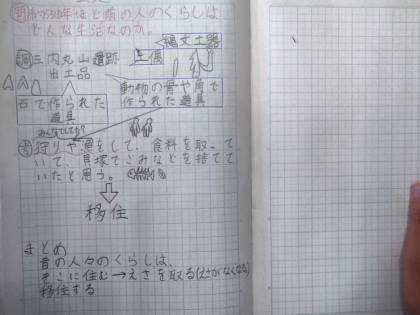 問 5500年ほど前の人のくらしは
どんな生活なのか。
縄文土器
調 三内丸山遺跡
土偶
出土品
石で作られた
道具
動物の骨や角で
作られた道具
みんなでしてる?
考 狩りや漁をして、食料を取って
いて、貝塚でごみなどを捨てて
いたと思う。
移住
まとめ
昔の人々のくらしは、
そこに住む→えさを取る(えさがなくなる)
移住する